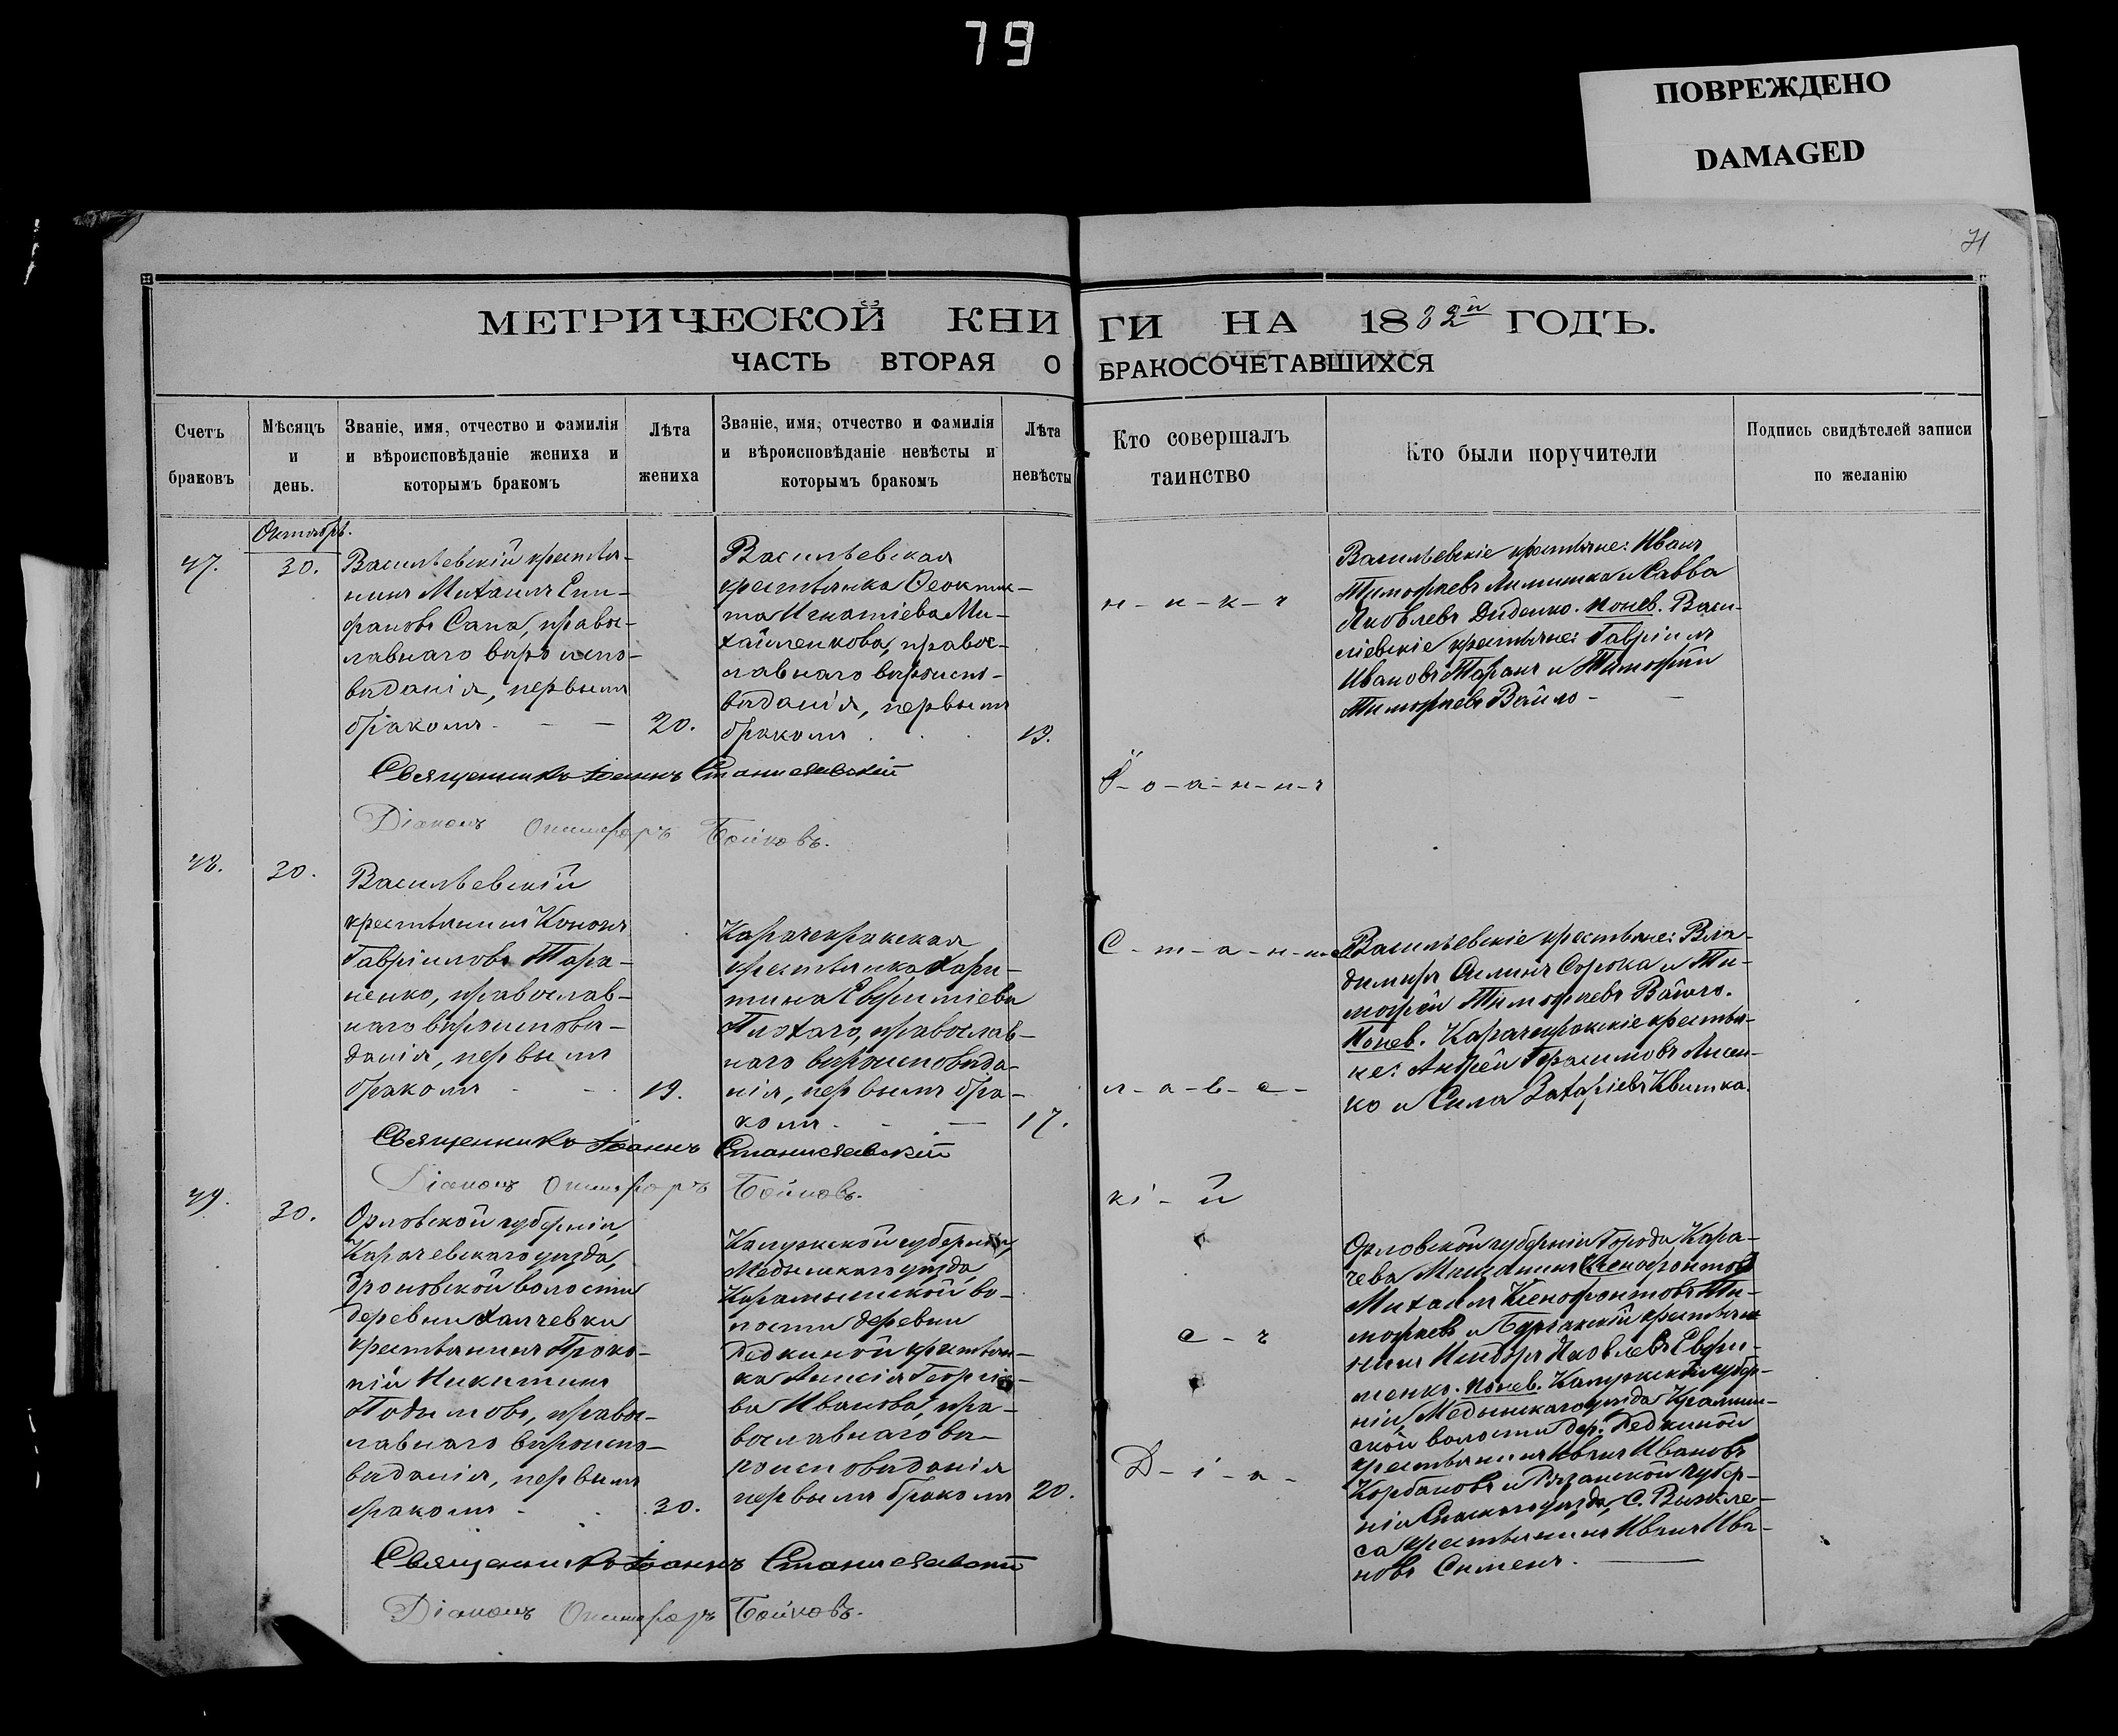 79
ПОВРЕЖДЕНО
DAMAGED
71
МЕТРИЧЕСКОЙ КНИГИ НА 1882й ГОДЪ.
ЧАСТЬ ВТОРАЯ О БРАКОСОЧЕТАВШИХСЯ
Счетъ
браковъ
Мѣсяцъ
и
день.
Званіе, имя, отчество и фамилія
и вѣроисповѣданіе жениха и
которымъ бракомъ
Лѣта
жениха
Званіе, имя, отчество и фамилія
и вѣроисповѣданіе невѣсты и
которымъ бракомъ
Лѣта
невѣсты
Кто совершалъ
таинство
Кто были поручители
Подпись свидѣтелей записи
по желанію
Октябрь.
47.
30.
Васильевскій крестья-
нинъ Михаилъ Епи-
фановъ Сапа, правос-
лавнаго вѣроиспо-
вѣданія, первымъ
бракомъ
20.
Васильевская
крестьянка Ѳеоктис-
та Игнатіева Ми-
хайленкова, правос-
лавнаго вѣроиспо-
вѣданія, первымъ
бракомъ
19.
н-и-к-ъ
І-о-а-н-н-ъ
Васильевскіе крестьяне: Иванъ
Тимофѣевъ и Савва
Яковлевъ Диденко. Понев. Васи-
лiевскіе крестьяне: Гавріилъ
Ивановъ Таранъ и Тимофѣй
Тимофѣевъ Вайло
Священникъ Іоаннъ Станиславскій
Діаконъ Онисифоръ Бойковъ.
48.
30.
Васильевскій
крестьянинъ Кононъ
Гавріиловъ Тара-
ненко, православ-
наго вѣроисповѣ-
данія, первымъ
бракомъ
19.
Карачекракская
крестьянка Хари-
тина Евфиміева
Плохаго, православ-
наго вѣроисповѣда-
нія, первымъ бра-
комъ
17.
С-т-а-н-и-с
л-а-в-с-
кі-й
Васильевскіе крестьяне: Вла-
димиръ Силинъ Сорока и Ти-
мофѣй Тимофѣевъ Вайло.
Понев. Карачекракскіе крестья-
не: Андрей Герасимовъ Лысен-
ко и Сила Захаріевъ Квитка.
Священникъ Іоаннъ Станиславскій
Діаконъ Онисифоръ Бойковъ.
49.
30.
Орловской губерніи,
Карачевскаго уѣзда,
Дроновской волости
деревни
крестьянинъ Проко-
пій Никитинъ
Подымовъ, правос-
лавнаго вѣроиспо-
вѣданія, первымъ
бракомъ
30.
Калужской губерніи,
Медынскаго уѣзда,
во-
лости деревни
Редкиной крестьян-
ка Анисія Георгіе-
ва Иванова, пра-
вославнаго вѣ-
роисповѣданія
первымъ бракомъ
20.
с-ъ
Д-і-а-
Орловской губерніи города Кара-
чева Мѣщанинъ
Михаилъ Ксенофонтовъ Ти-
мофѣевъ и крестьяни-
нинъ Исидоръ Яковлевъ Ефри-
менко. Понев. Калужской губер-
ніи, Медынскаго уѣзда
ской волости дер. Редкиной
крестьянинъ Иванъ Ивановъ
Корбановъ и Рязанской губер-
ніи Спаскаго уѣзда, С. Выжле-
са крестьянинъ Иванъ Ива-
новъ
Священникъ Іоаннъ Станиславскій
Діаконъ Онисифоръ Бойковъ.